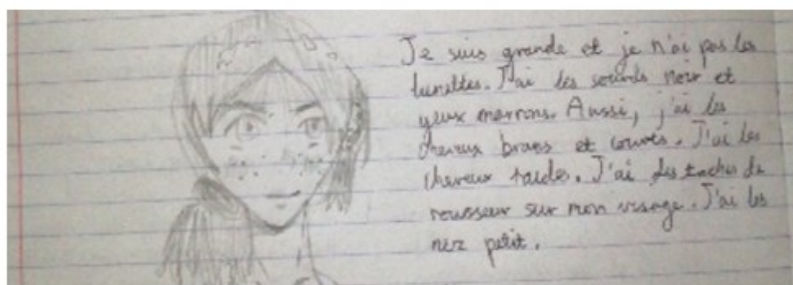 Je suis grande et je n'ai pas les
lunettes. J'ai les sourcils noir et
yeux marrons. Aussi, j'ai les
cheveux bruns et courts. J'ai les
cheveux raides. J'ai des taches de
rousseur sur mon visage. J'ai les
nez petit.